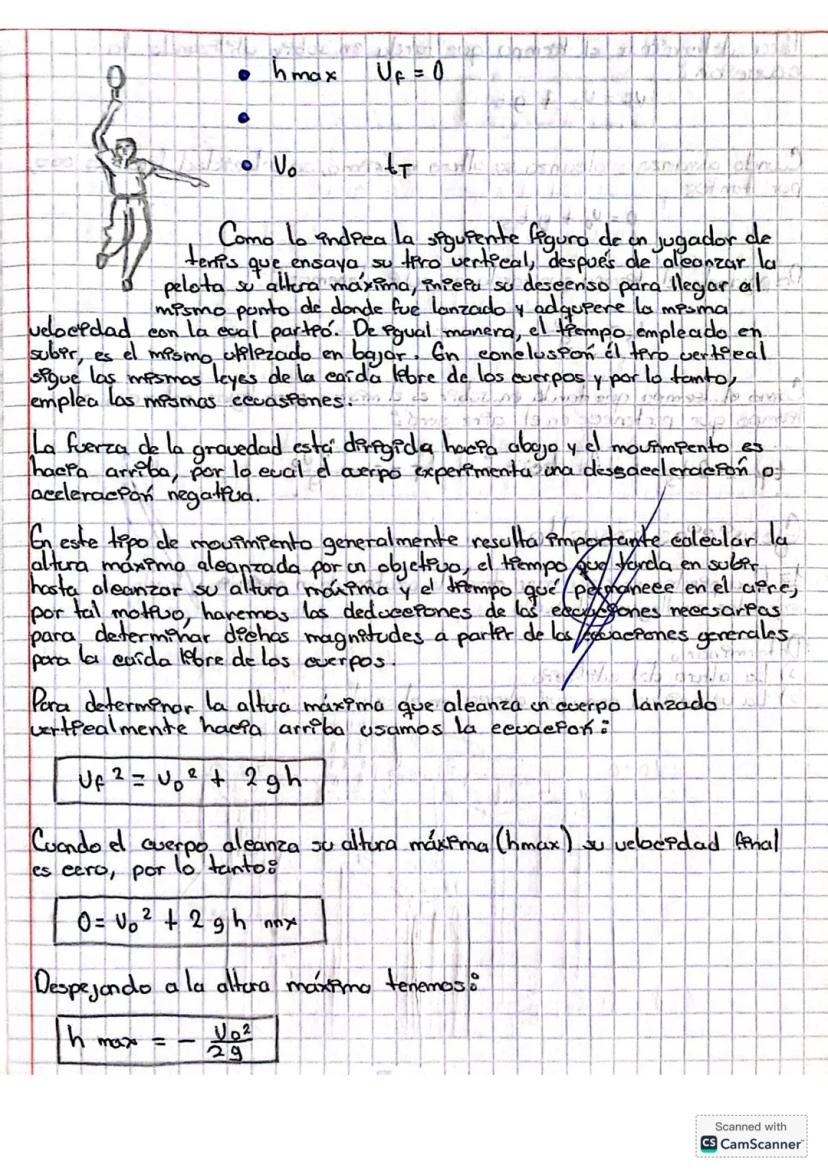 hmax Vf = 0
V₀ tT
Como lo indica la siguiente figura de un jugador de
tenis que ensaya su tiro vertical, después de alcanzar la
pelota su altura máxima, inicia su descenso para llegar al
mismo punto de donde fue lanzado y adquiere la misma
velocidad con la cual partió. De igual manera, el tiempo empleado en
subir, es el mismo utilizado en bajar. En conclusión él tiro vertical
sigue las mismas leyes de la caída libre de los cuerpos y por lo tanto,
emplea las mismas ecuasiones.
La fuerza de la gravedad está dirigida hacia abajo y el movimiento es
hacia arriba, por lo cual el cuerpo experimenta una dessaceleración o
aceleración negativa.
En este tipo de movimiento generalmente resulta importante calcular la
altura máxima alcanzada por un objetivo, el tiempo que tarda en subir
hasta alcanzar su altura máxima y el tiempo qué permanece en el aire,
por tal motivo, haremos las deducciones de las ecuaciones necesarias
para determinar dichas magnitudes a partir de las ecuaciones generales
para la caída libre de los cuerpos.
Para determinar la altura máxima que alcanza un cuerpo lanzado
verticalmente hacia arriba usamos la ecuación:
Vf² = V₀² + 2gh
Cuando el cuerpo alcanza su altura máxima (hmax) su velocidad final
es cero, por lo tanto:
0 = V₀² + 2gh mx
Despejando a la altura máxima tenemos:
h max = - V₀²/2g
Scanned with
CS CamScanner